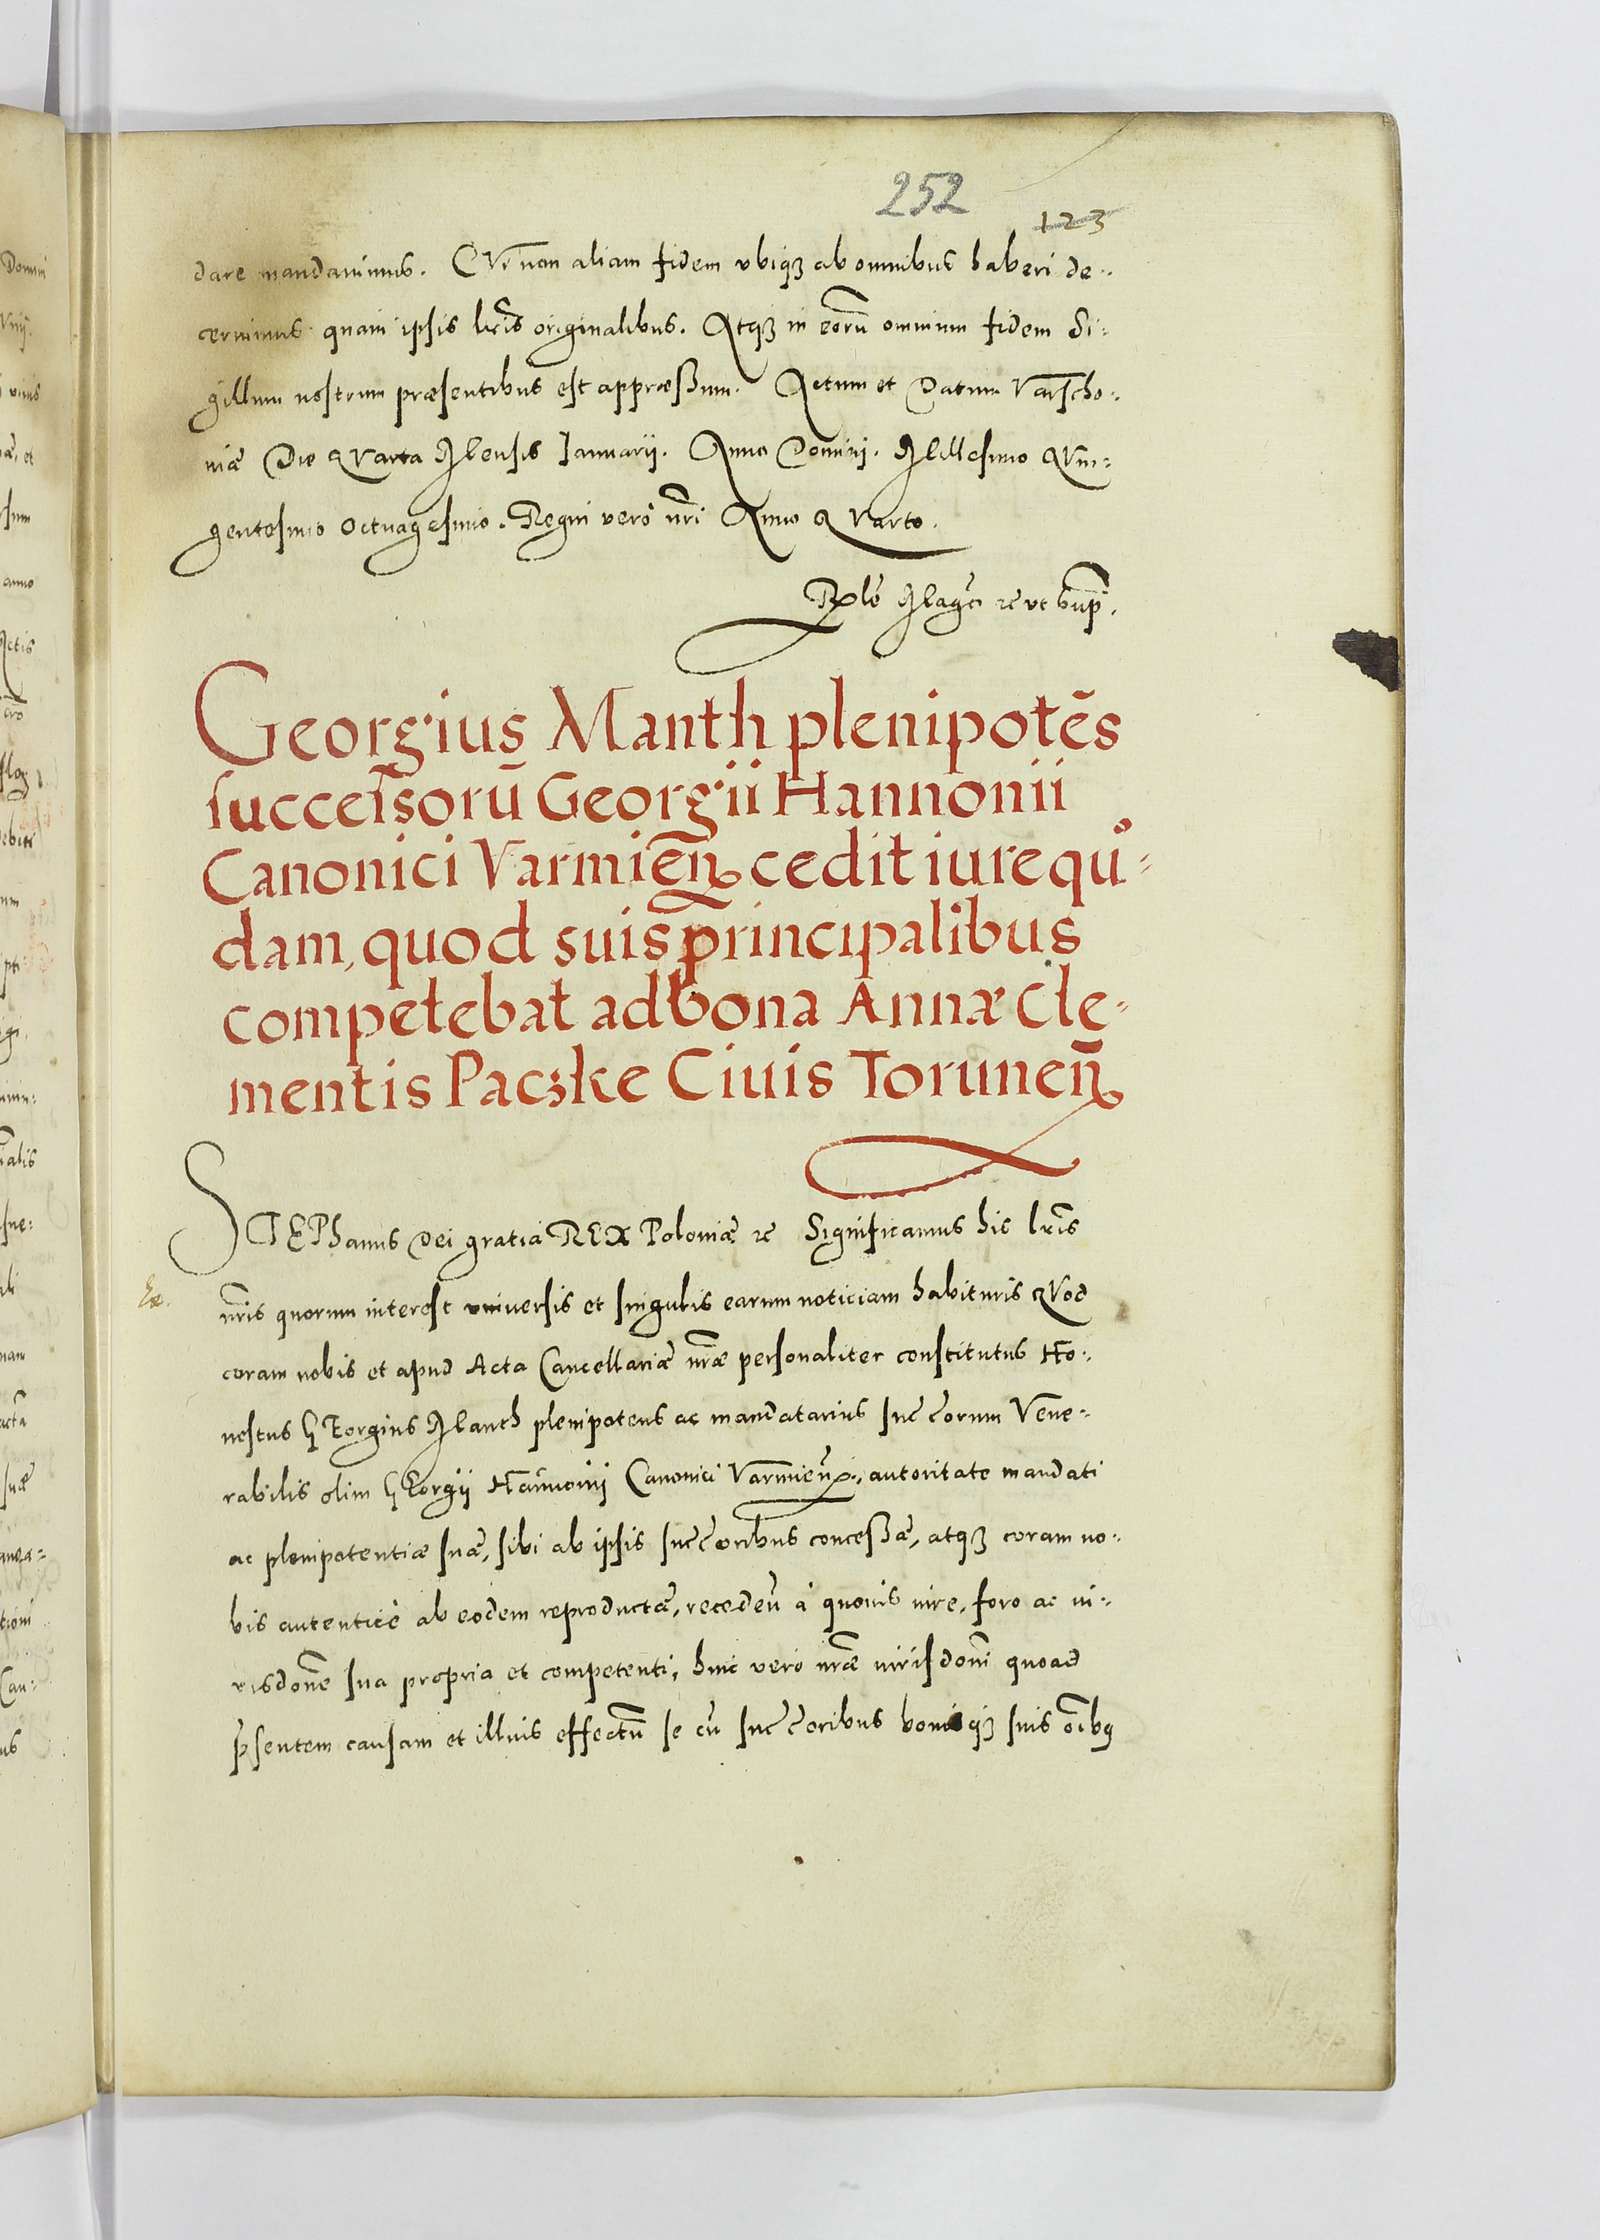 252
123
dare mandavimus. CVi non aliam fidem vbiqȝ ab omnibus haberi de-
cernimus quam ipsis lr̃is originalibus. Atqȝ in eorũ omnium fidem Si-
gillum nostrum præsentibus est appræßum. Actum et Datum Varscho-
niæ Die QVarta Mensis Ianuarij. Anno Domini. Millesimo QVin-
gentesimo Octuagesimo. Regni verò nr̃i Anno QVarto.
vt
Georgius Manth plenipotẽs
successorũ Georgii Hannonii
Canonici Varmieñ cedit iure quo-
dam, quod suis principalibus
competebat ad bona Annæ Cle-
mentis Paczke Ciuis Toruneñ
STEPhanus Dei gratia REX Poloniæ ꝛc Significamus his lr̃is
Ex.
nr̃is quorum interest vniuersis et singulis earum noticiam habituris QVod
coram nobis et apud Acta Cancellariæ nr̃æ personaliter constitutus Ho-
nestus GEorgius Manth plenipotens ac mandatarius succ̃orum Vene-
rabilis olim GEorgij Hannonij Canonici Varmieñ, autoritate mandati
ac plenipotentiæ suæ, sibi ab ipsis succ̃oribus conceßæ, atqȝ coram no-
bis autenticè ab eodem reproductæ, recedeñ à quouis iure, foro ac iu-
risdõne sua propria et competenti, huic verò nr̃æ iurisdõni quoad
p̃sentem causam et illius effectũ se cũ succ̃oribus bonisqȝ suis oĩbꝯ